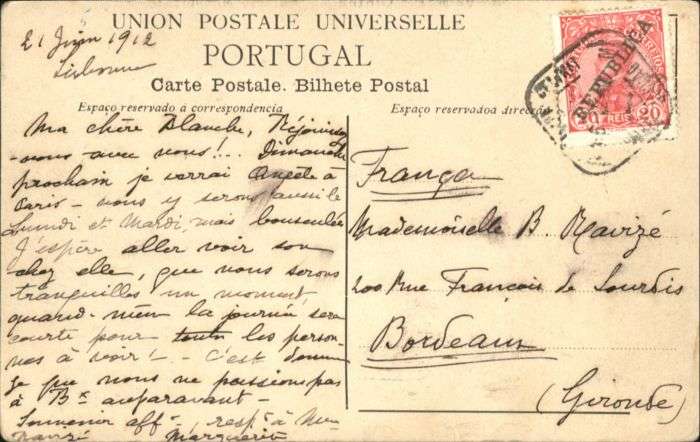 UNION POSTALE UNIVERSELLE
21 Juin 1912
Lisbonne
PORTUGAL
Carte Postale. Bilhete Postal
Espaço reservado á correspondencia
Espaço reservadoa direcção
REPUBLICA
CORREIOS
20 REIS 20
Ma chère Blanche, Réjouissez
-vous avec nous!... Dimanche
prochain je verrai Angèle à
Paris - nous y serons aussi le
Lundi et Mardi, mais bousculée
J'espère aller voir son
chez elle, que nous serons
tranquilles un moment,
quand-même la journée sera
courte pour toutes les person-
nes à voir! - C'est dommage
que nous ne passions pas
à Bx auparavant -
Souvenir aff. resp. à Me
Ravizé Marguerite
França
Mademoiselle B. Ravizé
200 Rue François de Sourdis
Bordeaux
(Gironde)